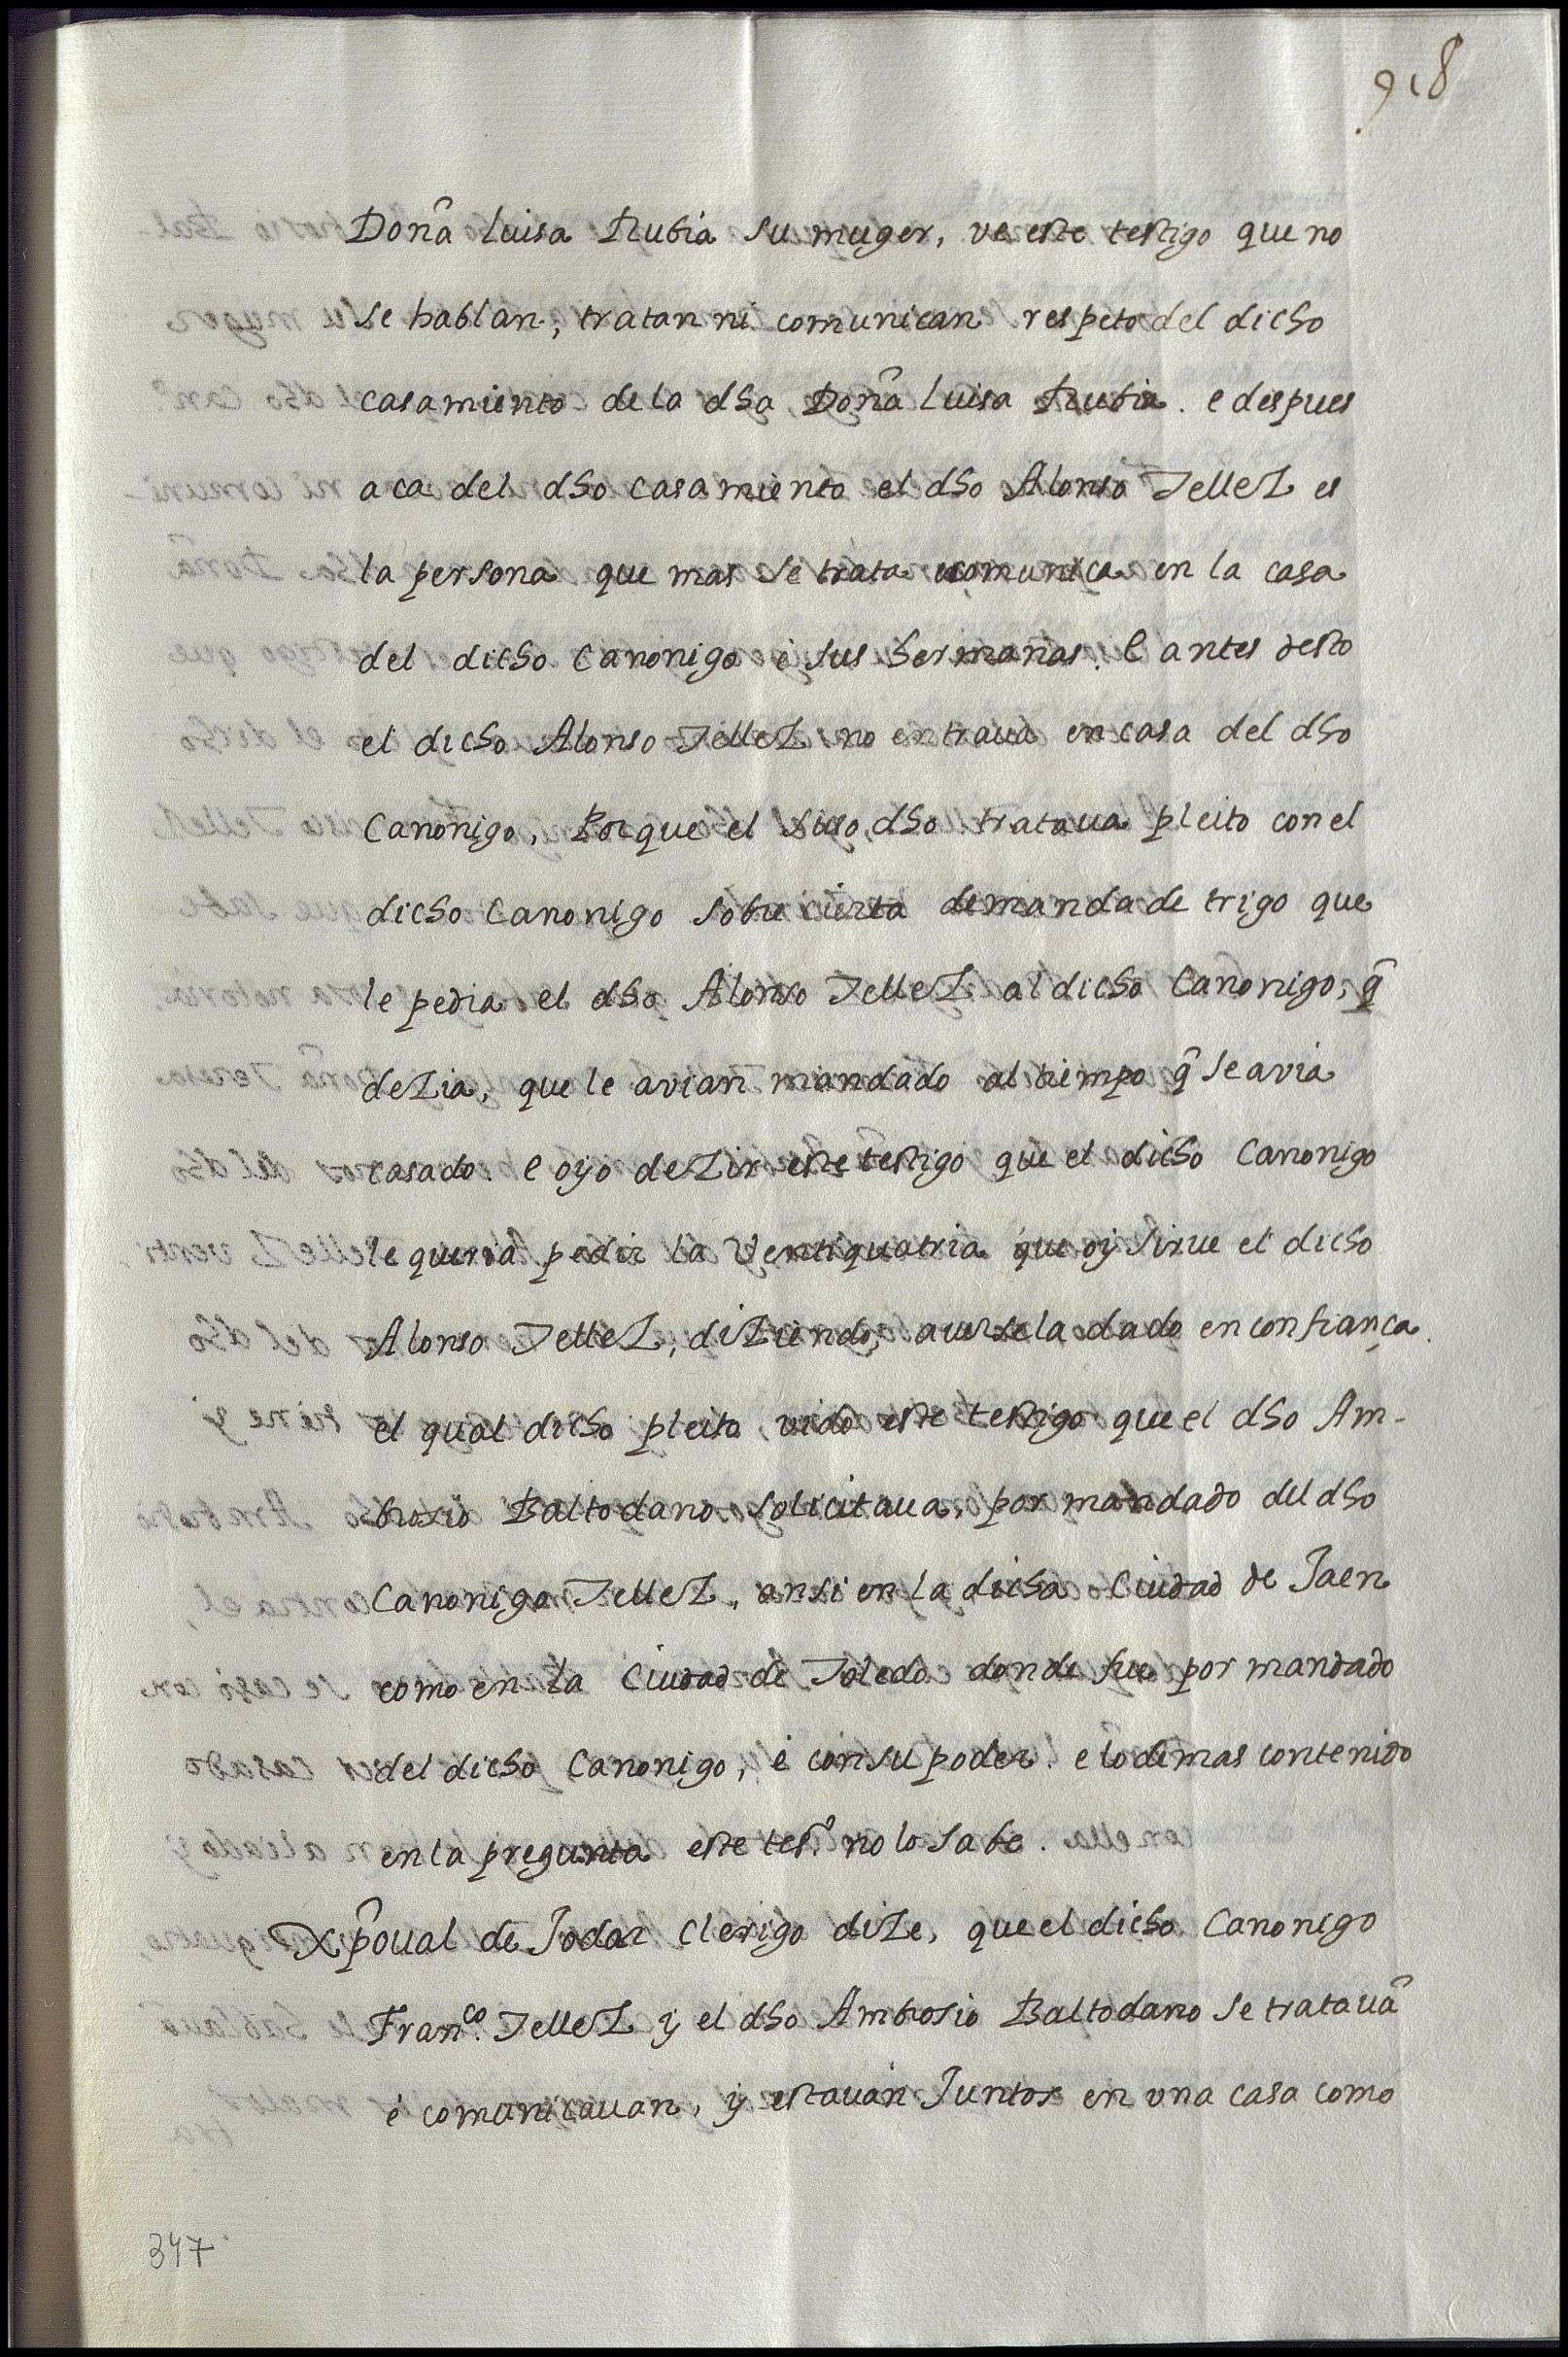 918
Doña Luisa Rubia su muger, ve este testigo que no
se hablan, tratan ni comunican respeto del dicho
casamiento de la dha Doña Luisa Rubia. e despues
aca del dho casamiento el dho Alonso Tellez es
la persona que mas se trata e comunica en la casa
del dicho Canonigo e sus hermanas. E antes desto
el dicho Alonso Tellez no entraua en casa del dho
Canonigo, Porque el suso dho trataua pleito con el
dicho Canonigo sobre cierta demanda de trigo que
le pedia el dho Alonso Tellez al dicho Canonigo, q̃
dezia, que le avian mandado al tiempo q̃ se avia
casado. e oyo dezir este testigo que el dicho Canonigo
le queria pedir la Ventiquatria que oy sirue el dicho
Alonso Tellez, diziendo, auersela dado en confiança.
el qual dicho pleito, vido este testigo que el dho Am-
brosio Baltodano solicitaua, por mandado del dho
Canonigo Tellez, ansi en la dicha Ciudad de Jaen
como en la Ciudad de Toledo donde fue por mandado
del dicho Canonigo, e con su poder. e lo demas contenido
en la pregunta este tesº. no lo sabe.
Xp̃oual de Jodar Clerigo dize, que el dicho Canonigo
Franco. Tellez y el dho Ambrosio Baltodano se tratauã
e comunicauan, y estauan Juntos en vna casa como
347